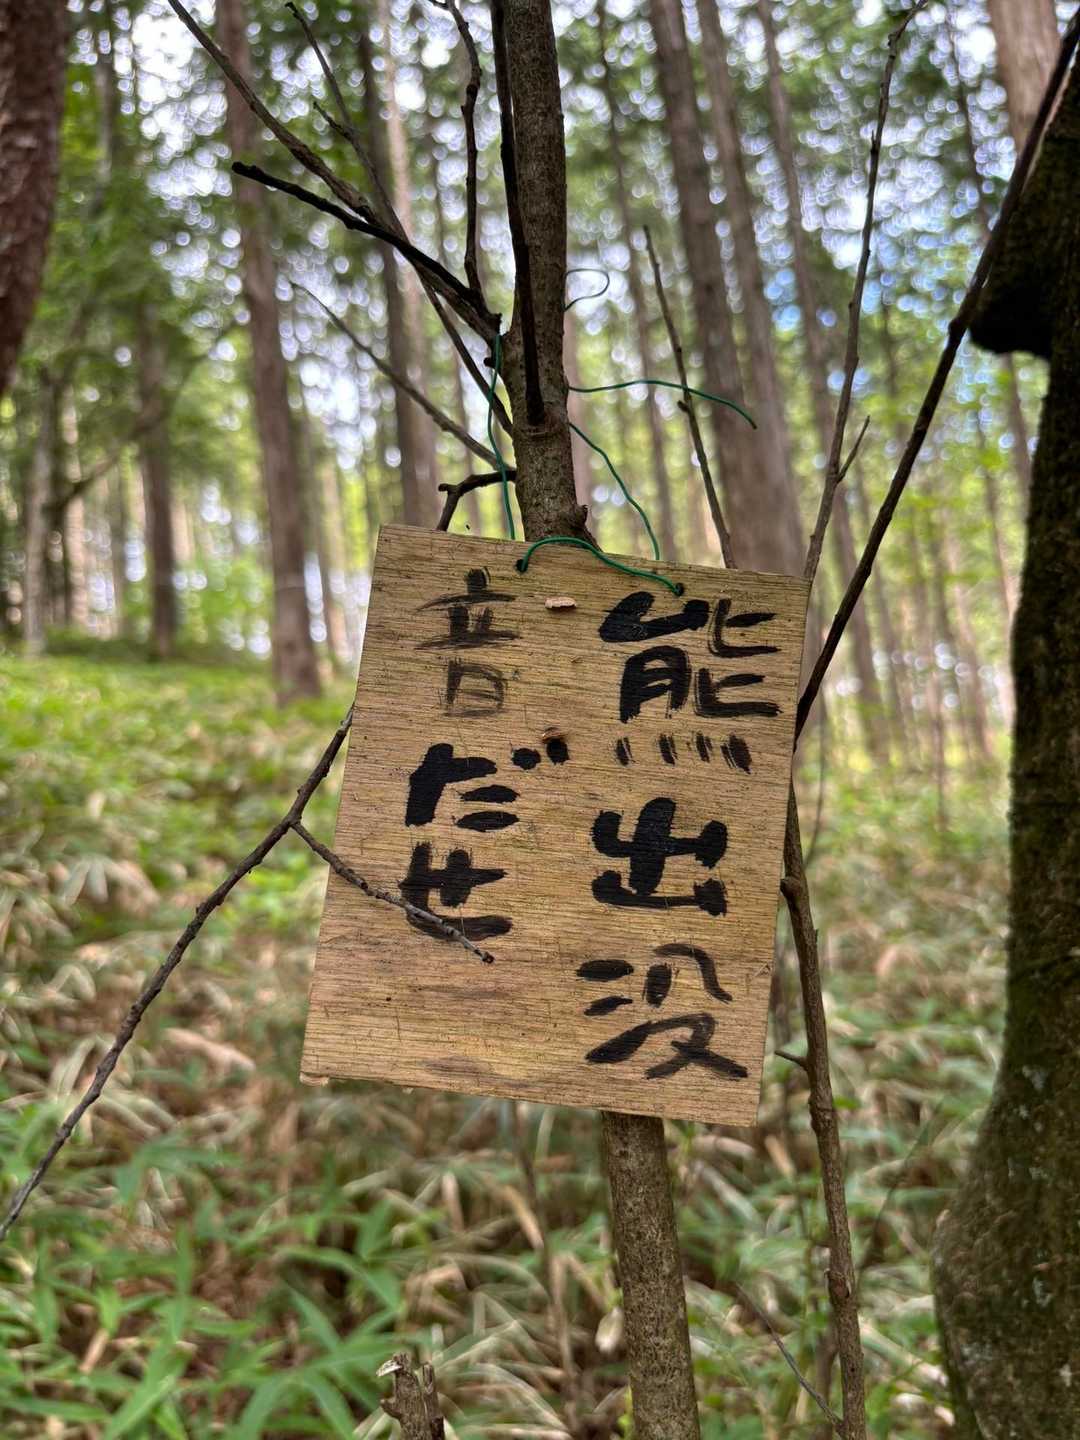 熊出没
音だせ